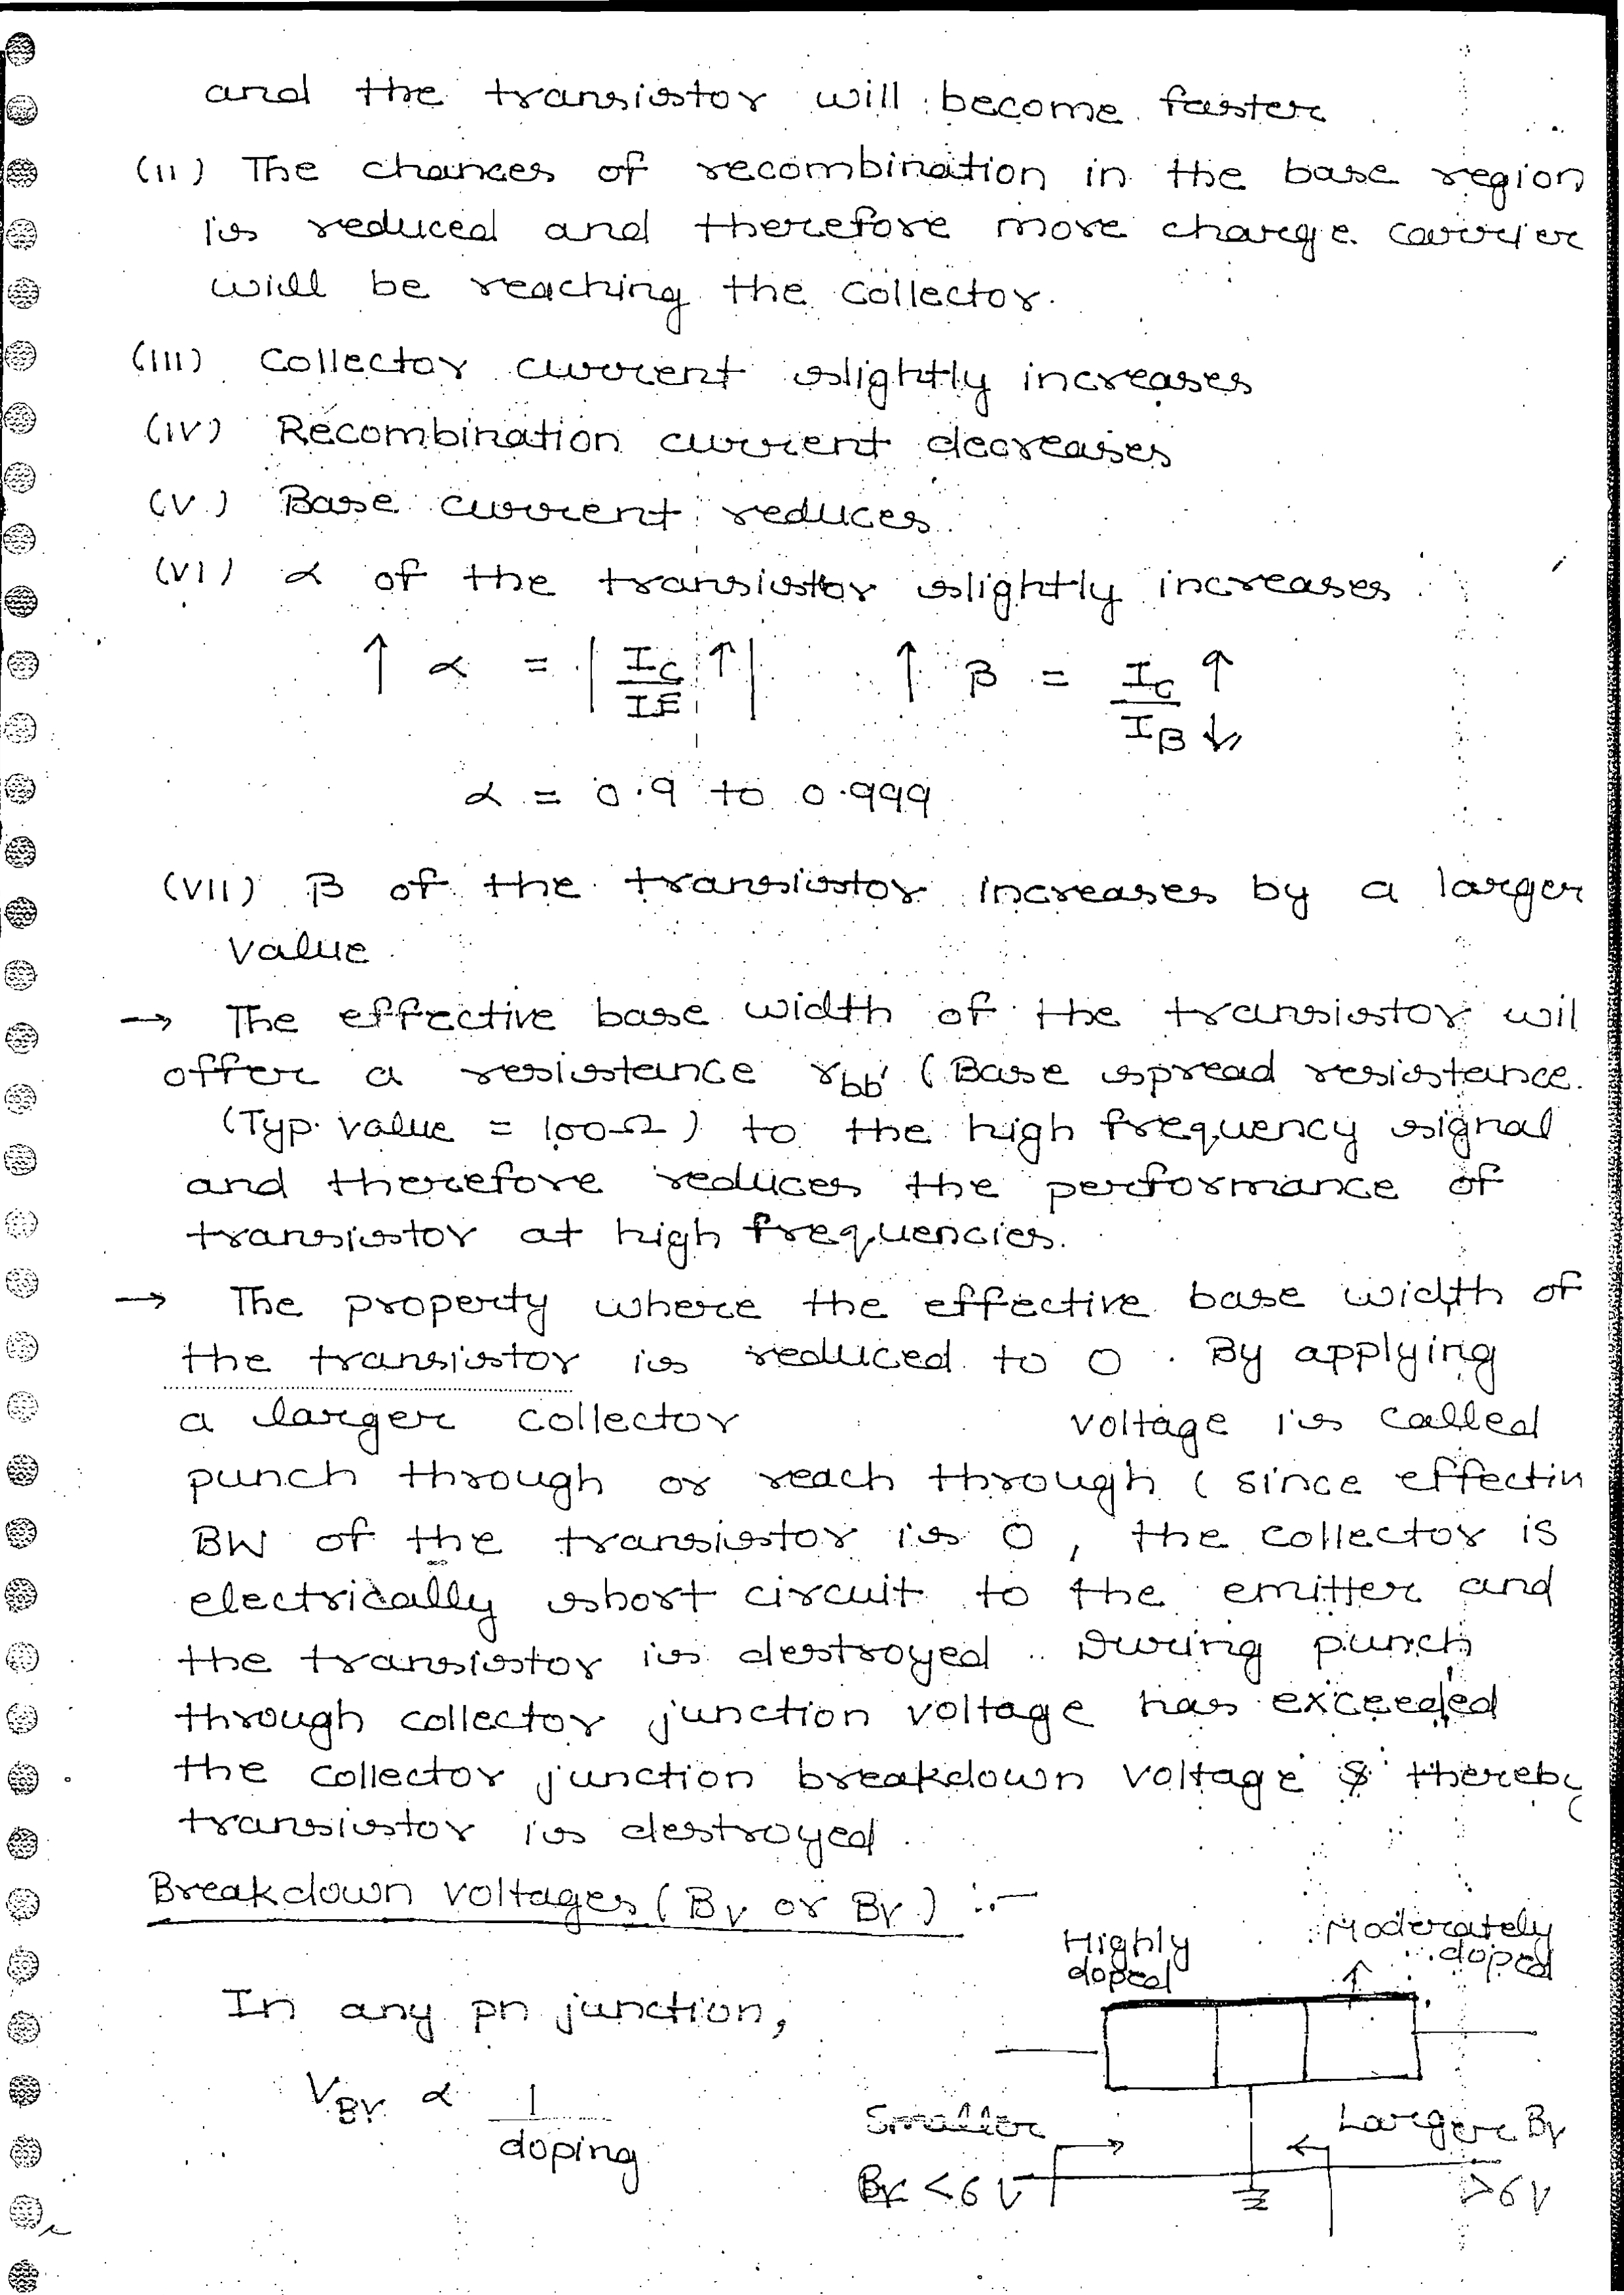 and the transistor will become faster
(ii) The chances of recombination in the base region
is reduced and therefore more charge carrier
will be reaching the collector.
(iii) Collector current slightly increases
(iv) Recombination current decreases
(v) Base current reduces
(vi) α of the transistor slightly increases
↑ α = | IC/IE ↑ | ↑ β = IC ↑ / IB ↓
α = 0.9 to 0.999
(vii) β of the transistor increases by a larger
value
→ The effective base width of the transistor wil
offer a resistance rbb' (Base spread resistance.
(Typ. value = 100Ω) to the high frequency signal
and therefore reduces the performance of
transistor at high frequencies.
→ The property where the effective base width of
the transistor is reduced to 0. By applying
a larger collector voltage is called
punch through or reach through (since effectin
BW of the transistor is 0, the collector is
electrically short circuit to the emitter and
the transistor is destroyed. During punch
through collector junction voltage has exceeded
the collector junction breakdown voltage & thereby
transistor is destroyed.
Breakdown voltages (BV or Br) :-
Highly doped
Moderately doped
In any pn junction,
VBr α 1/doping
Smaller
Br < 6V
Larger Br
>6V